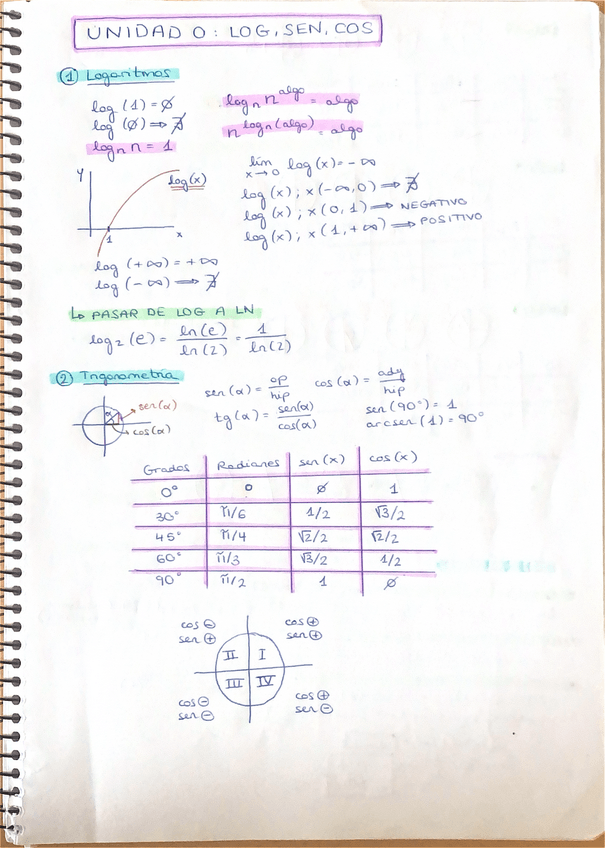 UNIDAD 0: LOG, SEN, COS
① Logaritmos
log (1) = ∅
log (∅) ⇒ ∄
logₙ n = 1
logₙ n^algo = algo
n^logₙ(algo) = algo
lim x→0 log (x) = -∞
log (x) ; x (-∞, 0) ⇒ ∄
log (x) ; x (0, 1) ⇒ NEGATIVO
log (x) ; x (1, +∞) ⇒ POSITIVO
y
log(x)
1
x
log (+∞) = +∞
log (-∞) ⇒ ∄
↳ PASAR DE LOG A LN
log₂ (e) = ln(e) / ln(2) = 1 / ln(2)
② Trigonometría
α
sen(α)
cos(α)
sen (α) = op / hip
cos (α) = ady / hip
tg (α) = sen(α) / cos(α)
sen (90°) = 1
arcsen (1) = 90°
Grados Radianes sen (x) cos (x)
0° 0 ∅ 1
30° π/6 1/2 √3/2
45° π/4 √2/2 √2/2
60° π/3 √3/2 1/2
90° π/2 1 ∅
cos ⊖
sen ⊕
cos ⊕
sen ⊕
II I
III IV
cos ⊖
sen ⊖
cos ⊕
sen ⊖